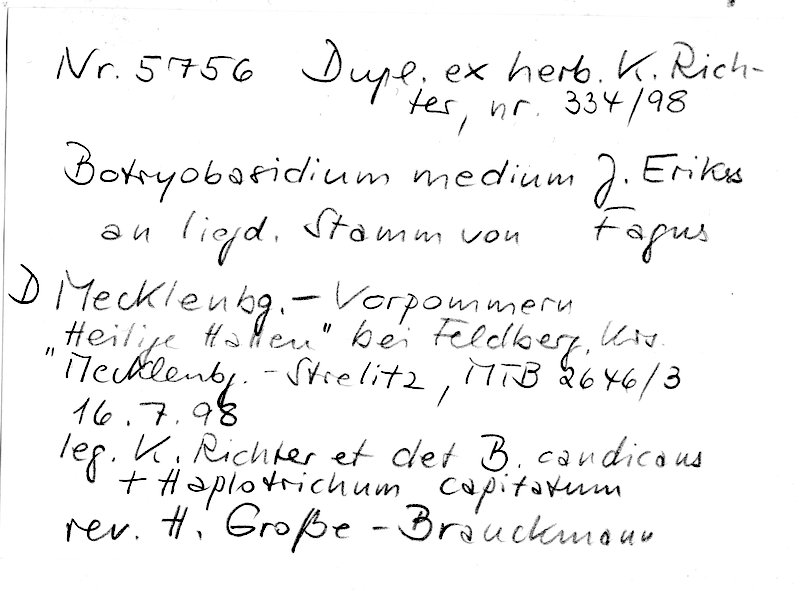 Nr. 5756 Dupl. ex herb. K. Rich-
ter, nr. 334/98
Botryobasidium medium J. Erikss
an liegd. Stamm von Fagus
D Mecklenbg.-Vorpommern
"Heilige Hallen" bei Feldberg, Krs.
Mecklenbg.-Strelitz, MTB 2646/3
16.7.98
leg. K. Richter et det B. candicans
+ Haplotrichum capitatum
rev. H. Große-Brauckmann